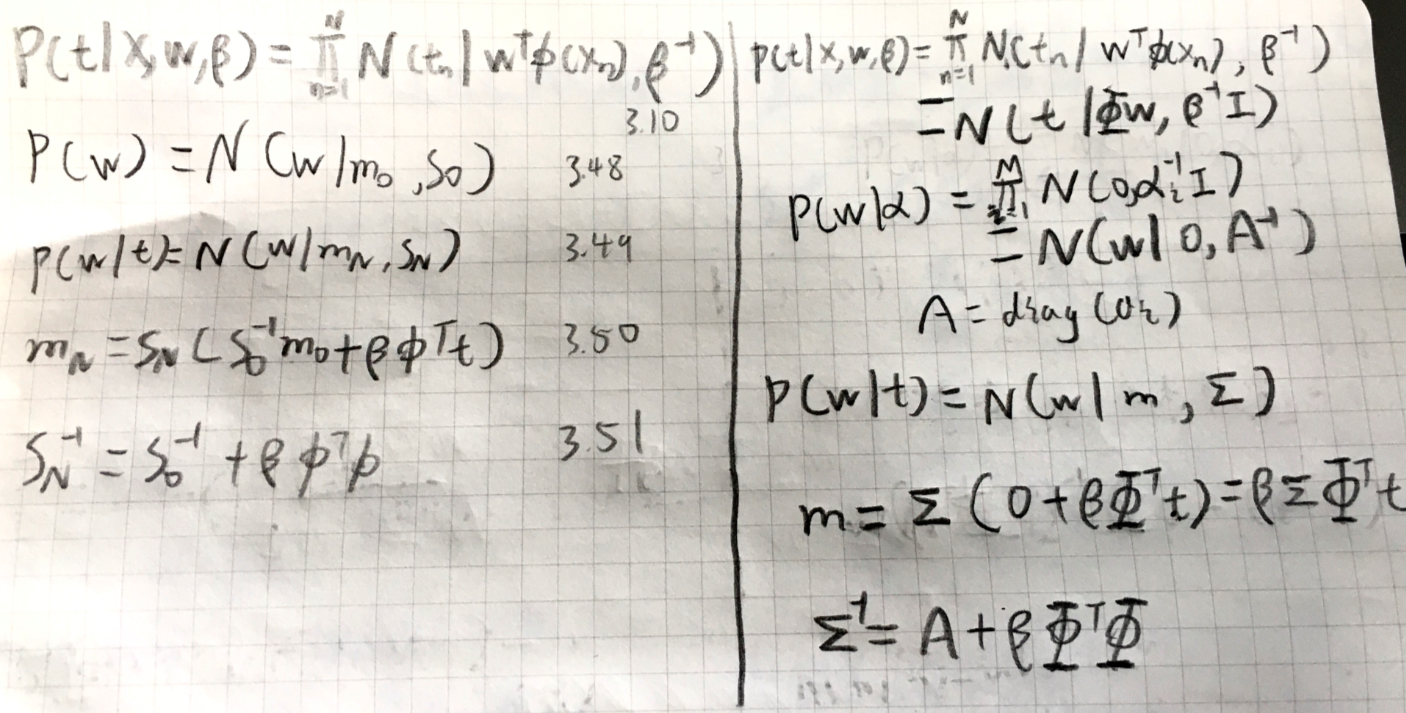 P(t|x,w,β) = ∏ₙ₌₁ᴺ N(tₙ|wᵀϕ(xₙ),β⁻¹)
3.10
P(w) = N(w|m₀,S₀) 3.48
P(w|t) = N(w|m_N,S_N) 3.49
m_N = S_N(S₀⁻¹m₀+βϕᵀt) 3.50
S_N⁻¹ = S₀⁻¹ + βϕᵀϕ 3.51
p(t|x,w,β) = ∏ₙ₌₁ᴺ N(tₙ|wᵀϕ(xₙ), β⁻¹)
= N(t|Φw, β⁻¹I)
P(w|α) = ∏ᵢ₌₁ᴹ N(0,αᵢ⁻¹I)
= N(w|0, A⁻¹)
A = diag(αᵢ)
P(w|t) = N(w|m, Σ)
m = Σ(0+βΦᵀt) = βΣΦᵀt
Σ⁻¹ = A + βΦᵀΦ